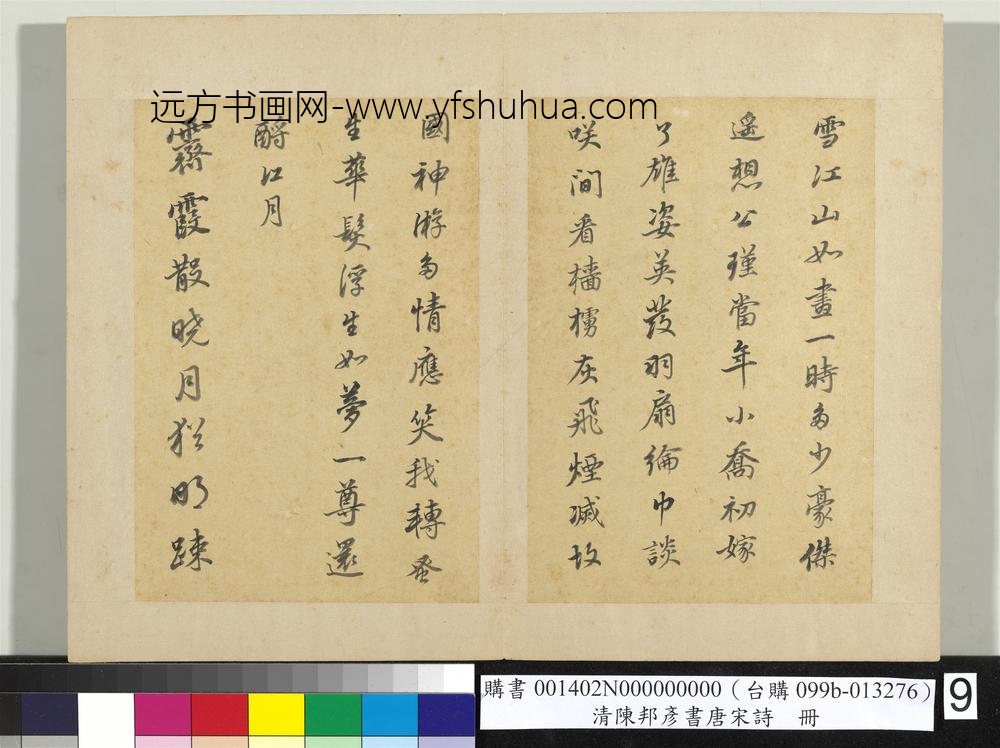 远方书画网-www.yfshuhua.com
雪江山如畫一時多少豪傑
遥想公瑾當年小喬初嫁
了雄姿英發羽扇綸巾談
咲間看檣櫓灰飛煙滅故
國神游多情應笑我轉蚤
生華髮浮生如夢一尊還
酹江月
霽霞散曉月猶明疎
購書 001402N000000000（台購 099b-013276）
清陳邦彥書唐宋詩 冊
9